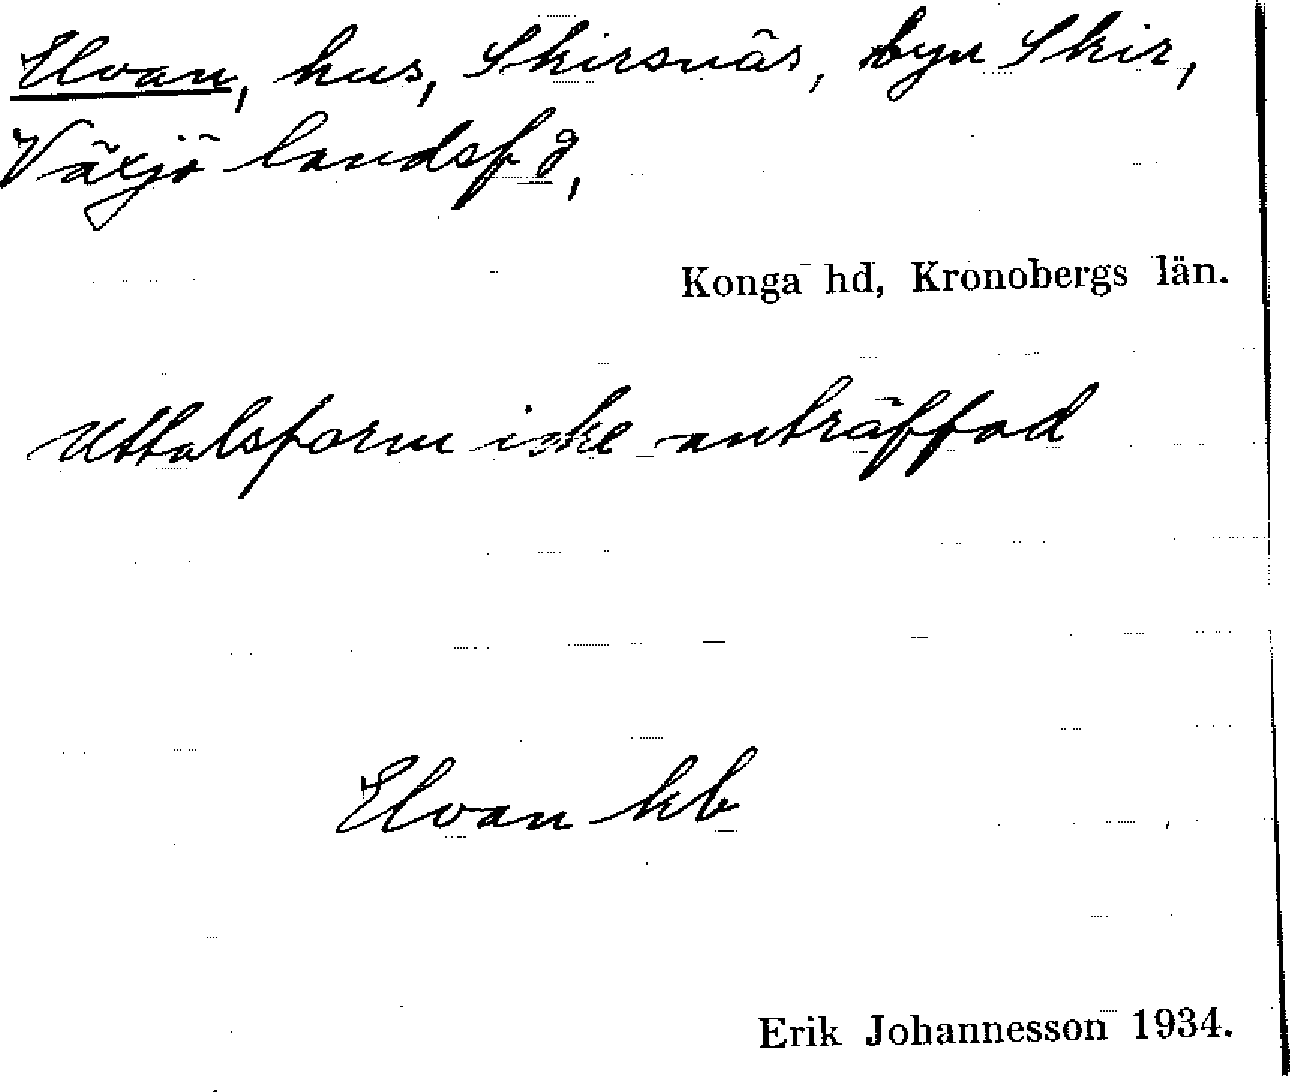 Elvan, hus, Skirsnäs, byn Skir,
Växjö landsf d,
Konga hd, Kronobergs län.
Uttalsform icke anträffad
Elvan kb
Erik Johannesson 1934.